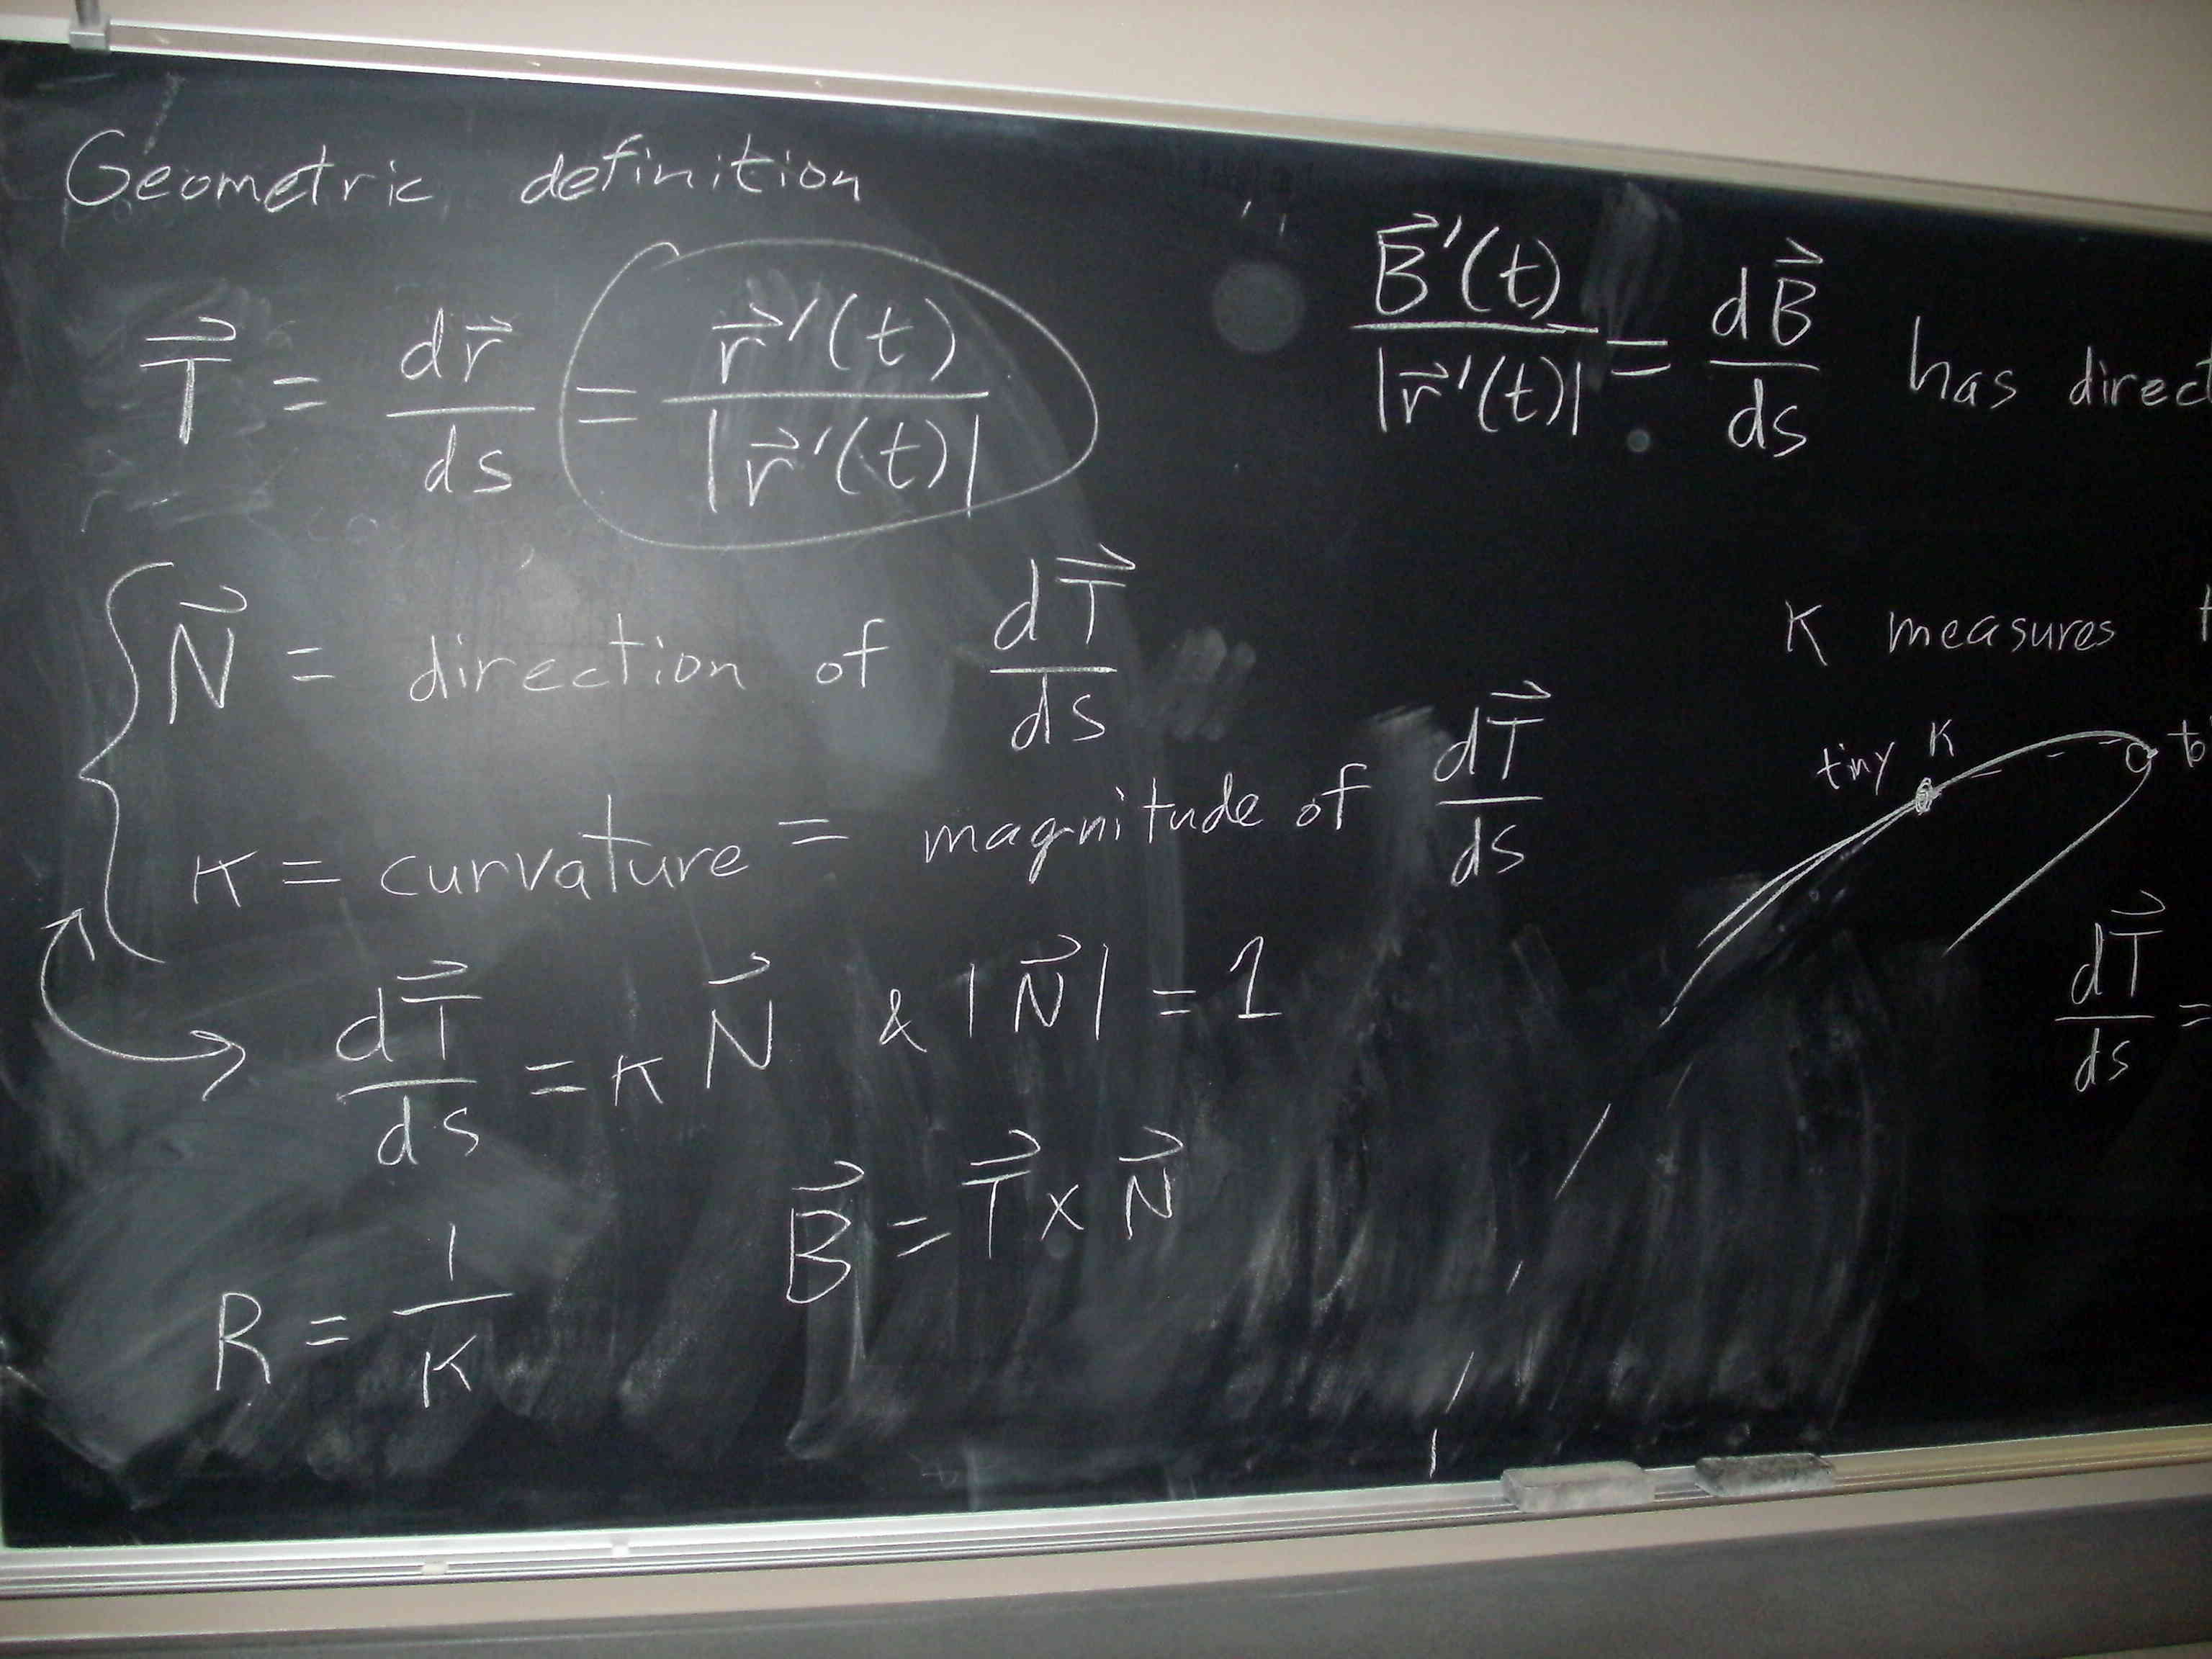 Geometric definition
T⃗ = dr⃗/ds = r⃗'(t)/|r⃗'(t)|
N⃗ = direction of dT⃗/ds
κ = curvature = magnitude of dT⃗/ds
dT⃗/ds = κ N⃗ & |N⃗| = 1
B⃗ = T⃗ × N⃗
R = 1/κ
B⃗'(t)/|r⃗'(t)| = dB⃗/ds has direct
κ measures
tiny κ
dT⃗/ds =